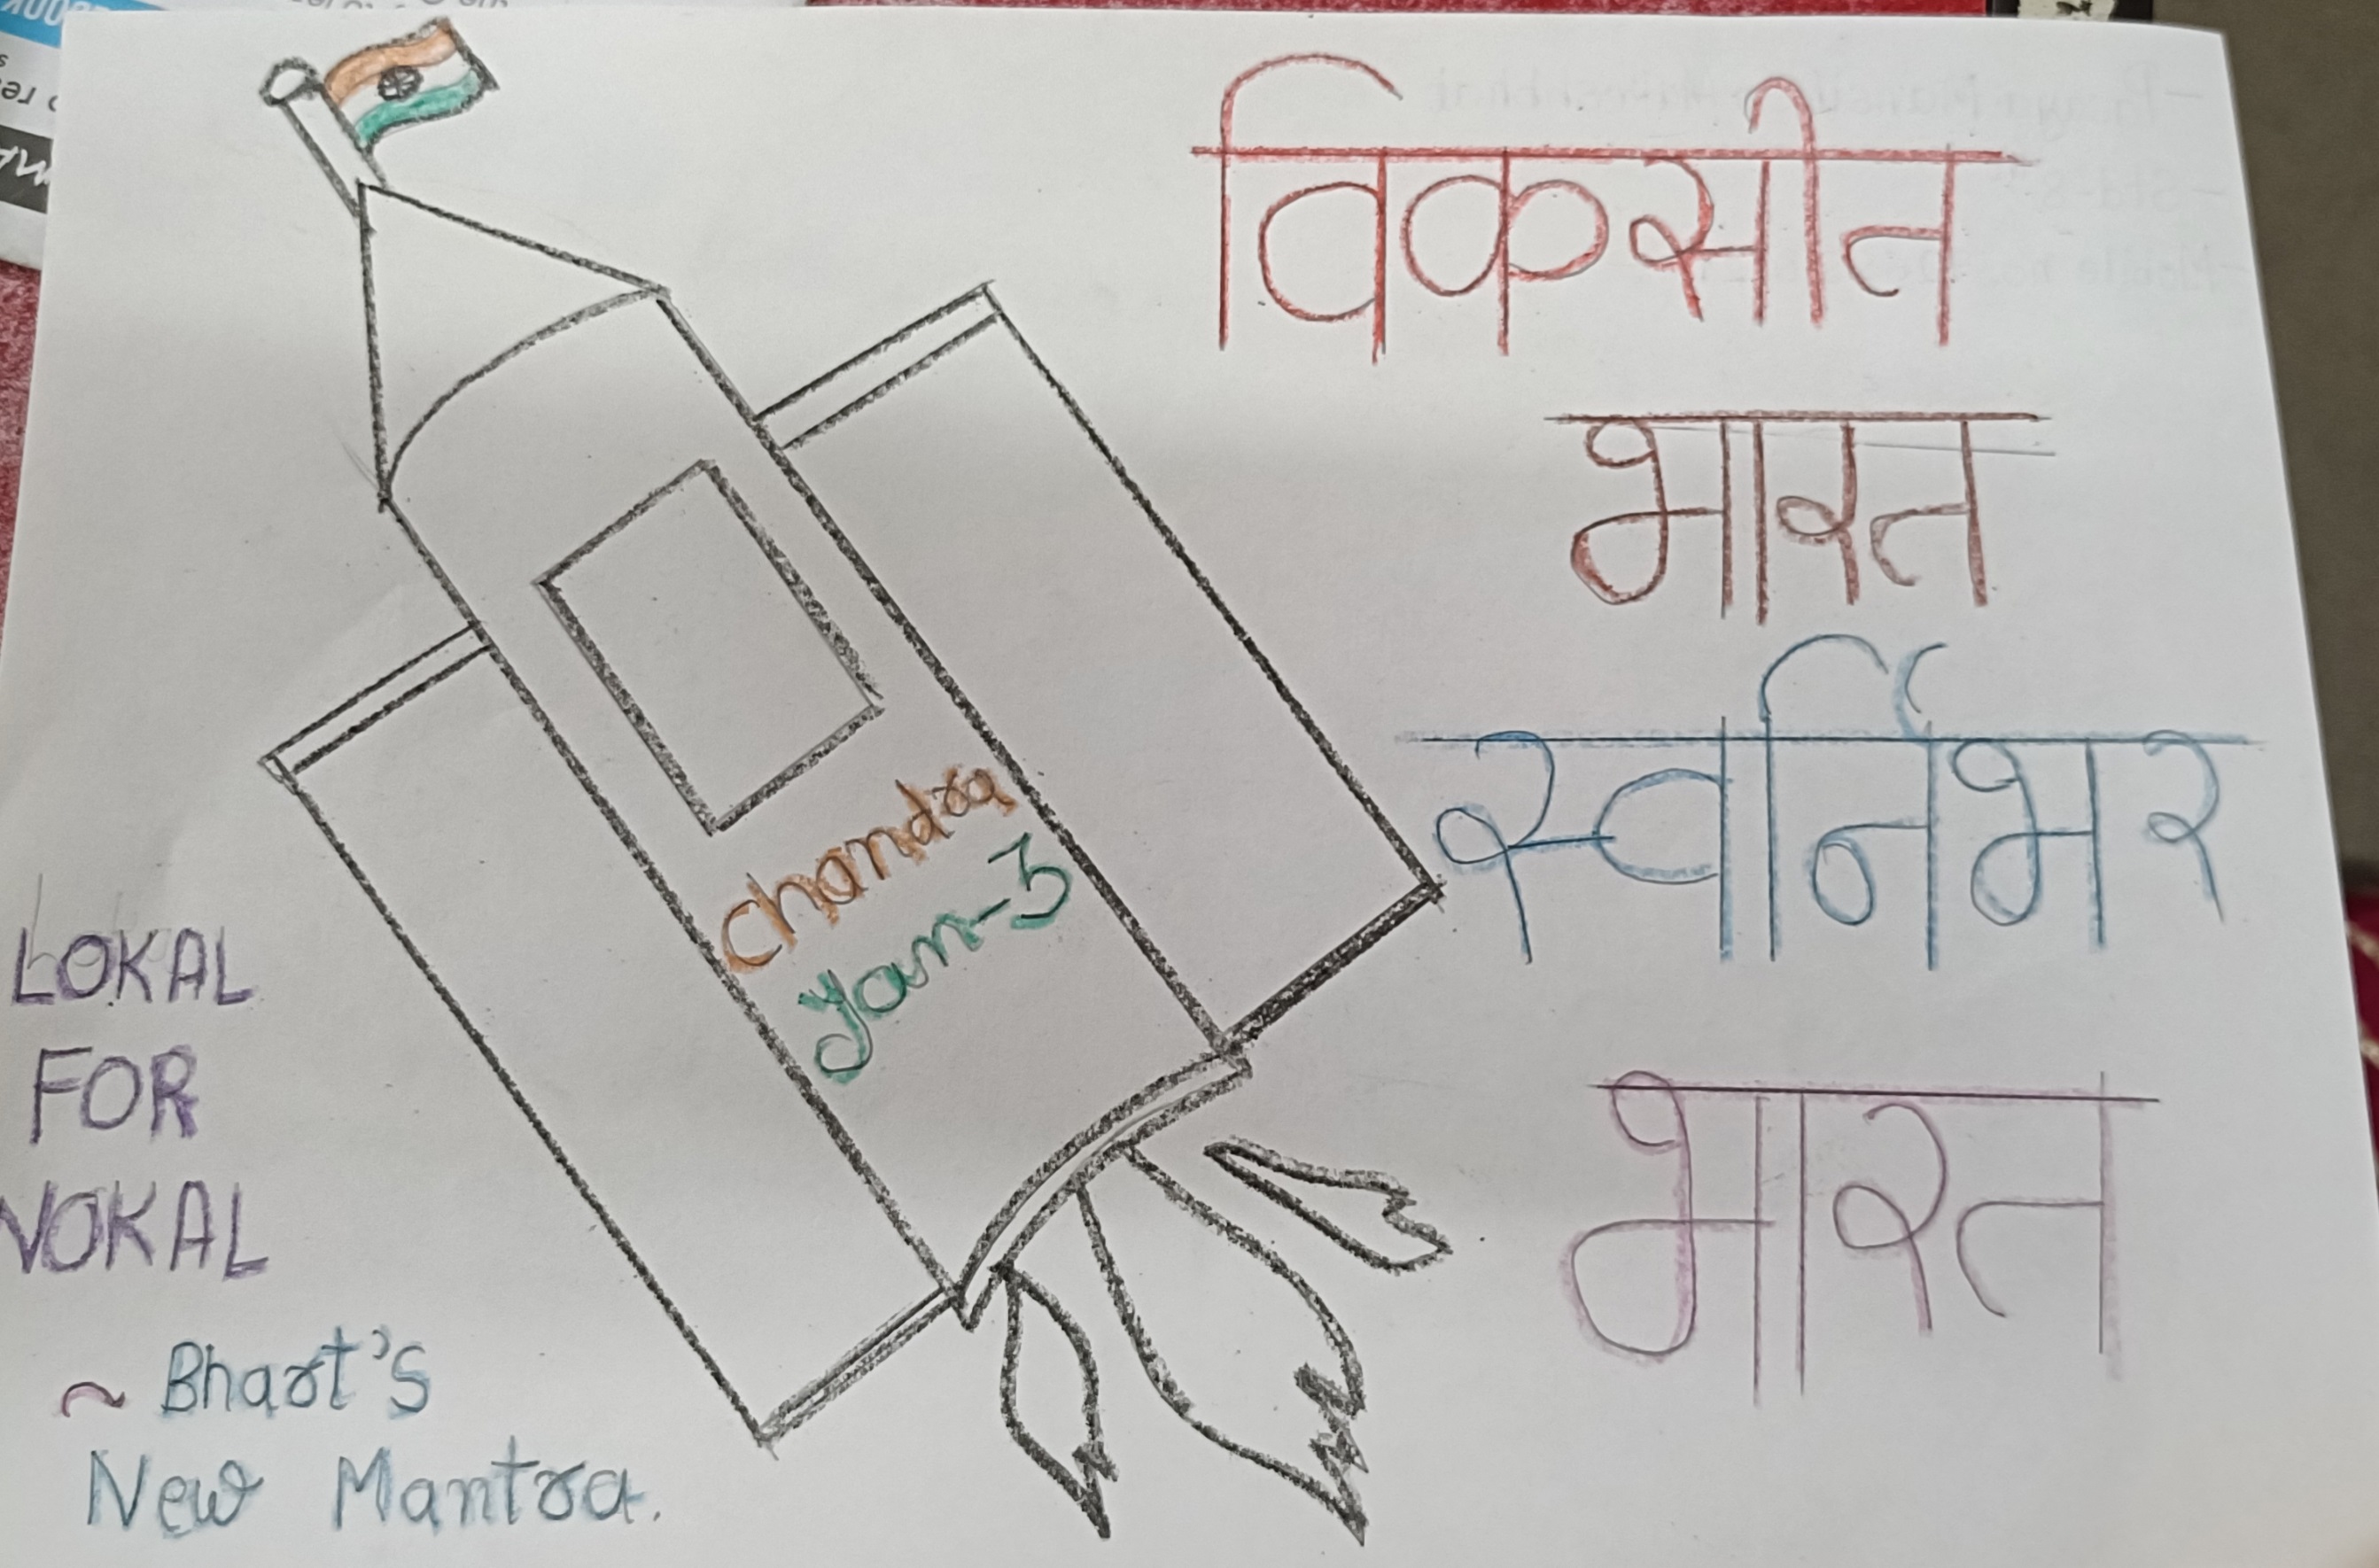 विकसीत
भारत
स्वर्निभर
भारत
Chandra
Yan-3
LOKAL
FOR
VOKAL
~ Bhart's
New Mantra.